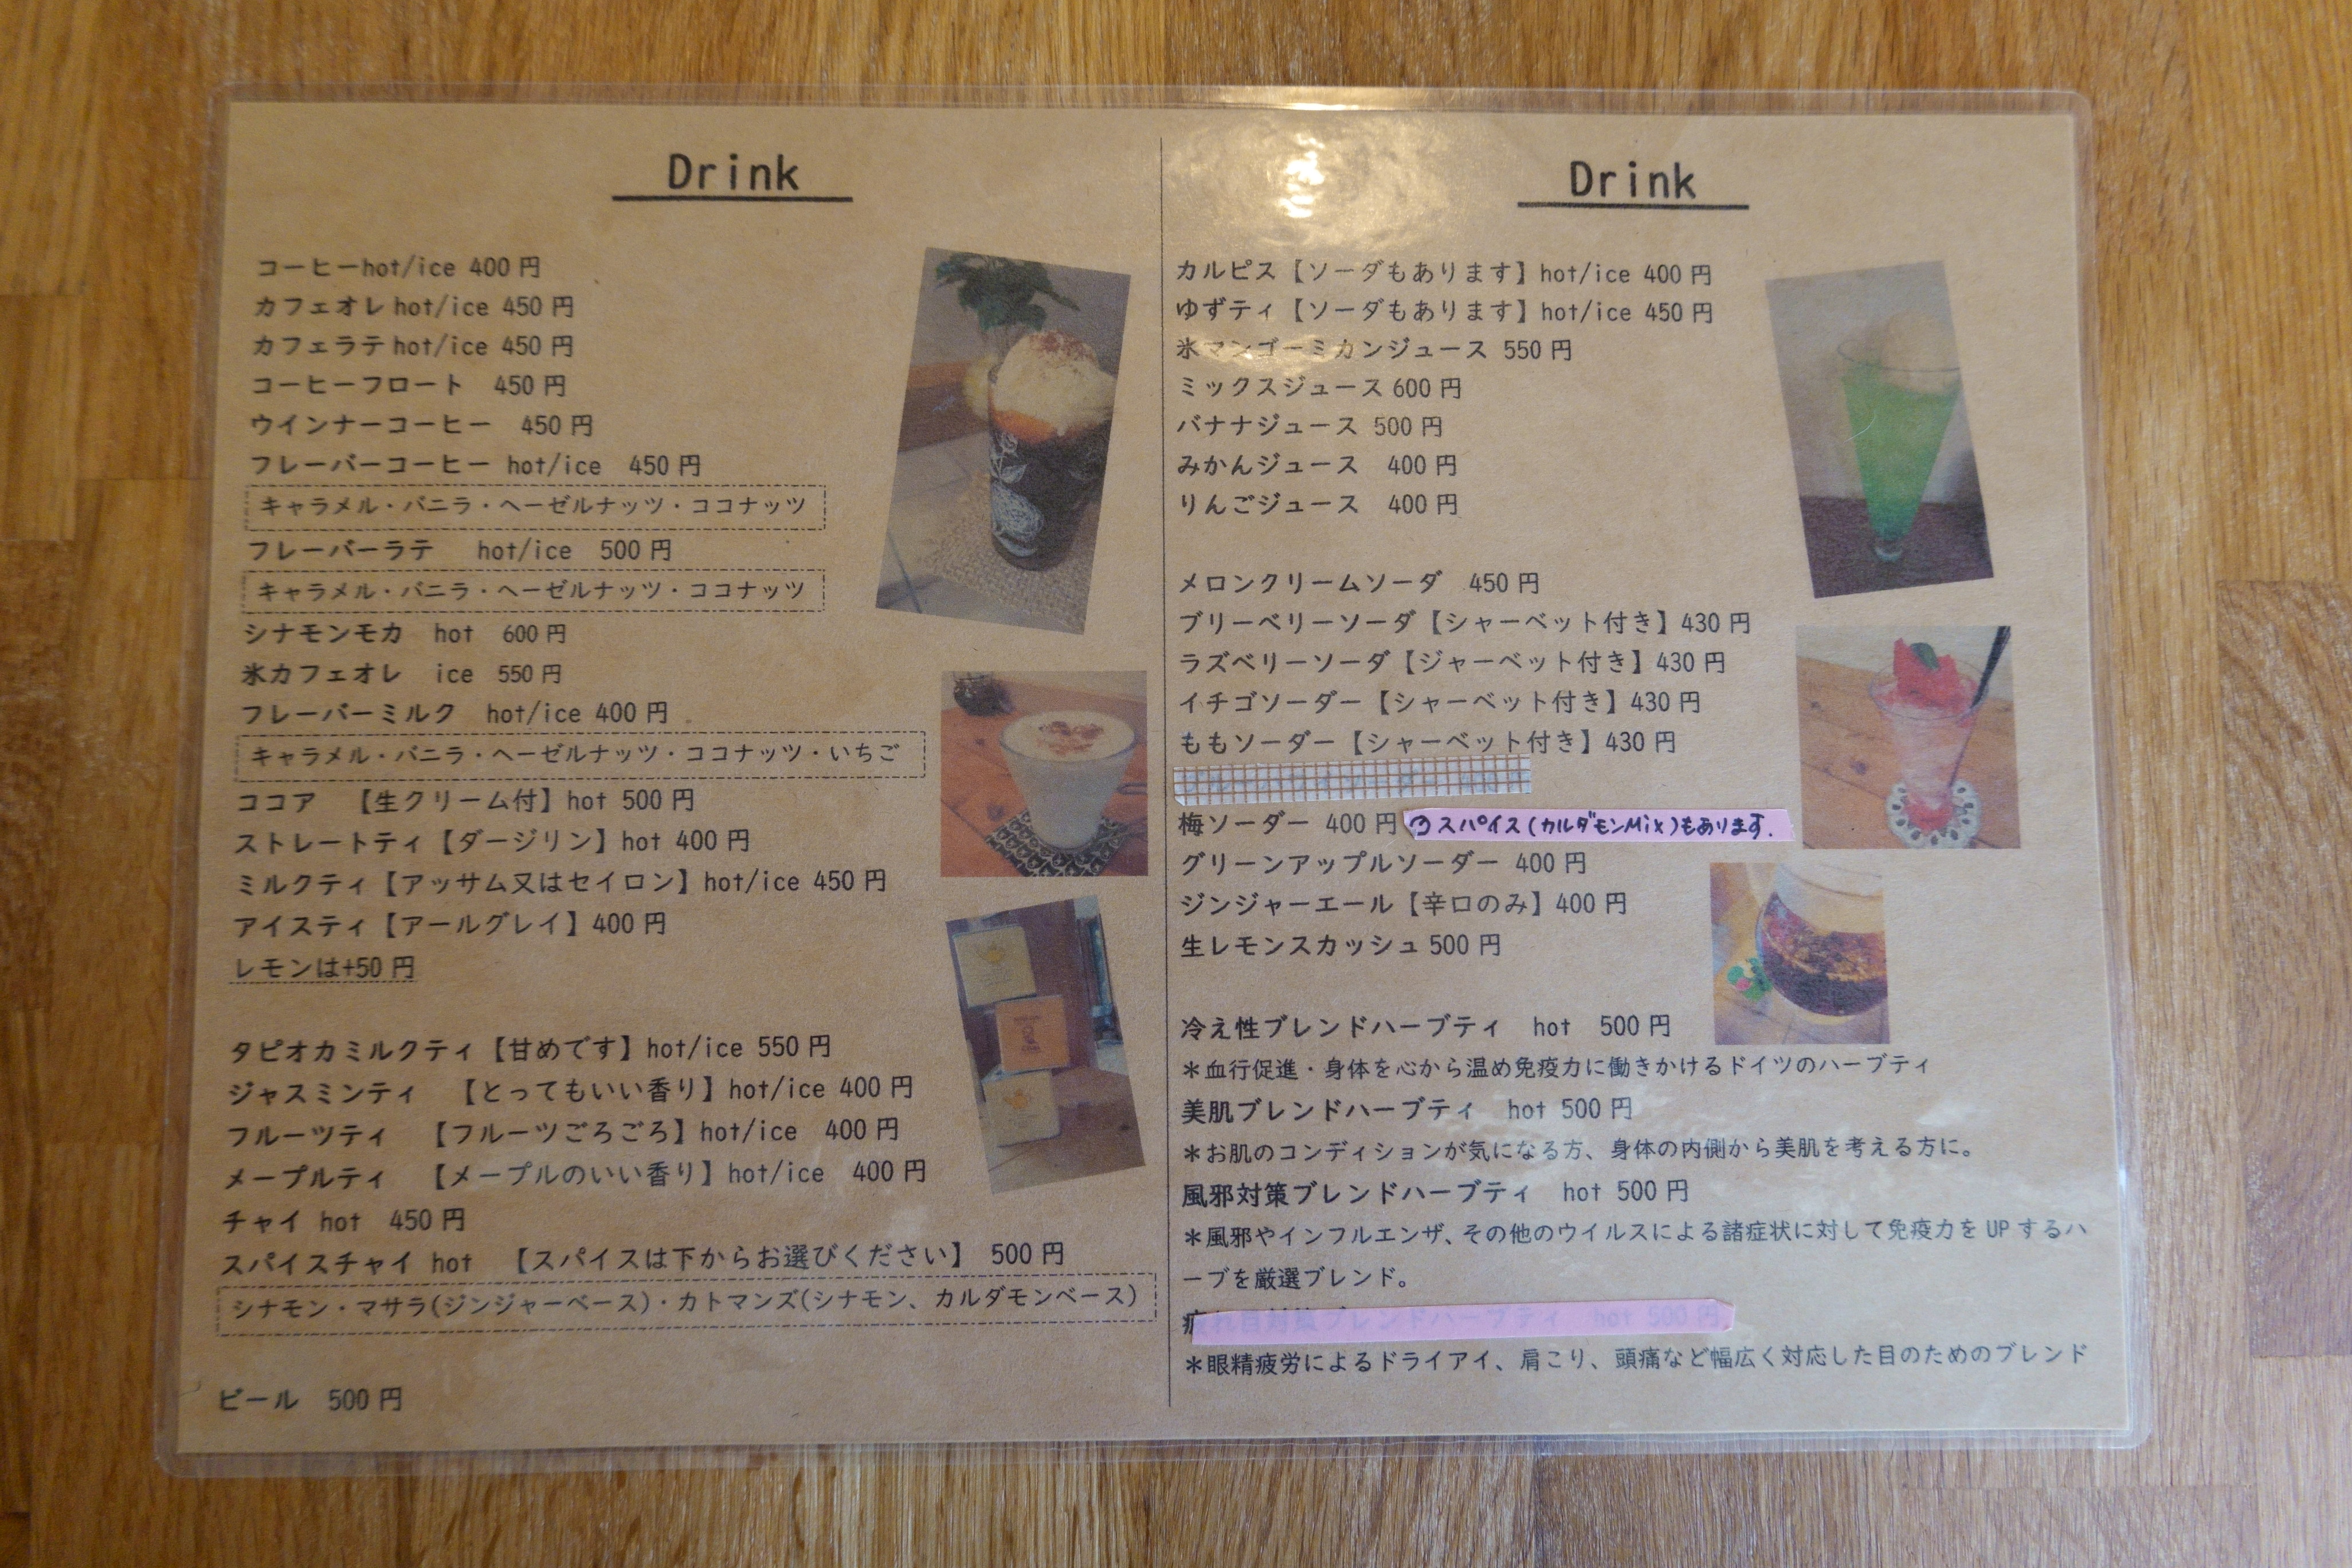 Drink
コーヒーhot/ice 400円
カフェオレhot/ice 450円
カフェラテhot/ice 450円
コーヒーフロート 450円
ウインナーコーヒー 450円
フレーバーコーヒー hot/ice 450円
キャラメル・バニラ・ヘーゼルナッツ・ココナッツ
フレーバーラテ hot/ice 500円
キャラメル・バニラ・ヘーゼルナッツ・ココナッツ
シナモンモカ hot 600円
氷カフェオレ ice 550円
フレーバーミルク hot/ice 400円
キャラメル・バニラ・ヘーゼルナッツ・ココナッツ・いちご
ココア 【生クリーム付】hot 500円
ストレートティ【ダージリン】hot 400円
ミルクティ【アッサム又はセイロン】hot/ice 450円
アイスティ【アールグレイ】400円
レモンは+50円
タピオカミルクティ【甘めです】hot/ice 550円
ジャスミンティ 【とってもいい香り】hot/ice 400円
フルーツティ 【フルーツごろごろ】hot/ice 400円
メープルティ 【メープルのいい香り】hot/ice 400円
チャイ hot 450円
スパイスチャイ hot 【スパイスは下からお選びください】 500円
シナモン・マサラ(ジンジャーベース)・カトマンズ(シナモン、カルダモンベース)
ビール 500円
Drink
カルピス【ソーダもあります】hot/ice 400円
ゆずティ【ソーダもあります】hot/ice 450円
氷マンゴーミカンジュース 550円
ミックスジュース 600円
バナナジュース 500円
みかんジュース 400円
りんごジュース 400円
メロンクリームソーダ 450円
ブリーベリーソーダ【シャーベット付き】430円
ラズベリーソーダ【ジャーベット付き】430円
イチゴソーダー【シャーベット付き】430円
ももソーダー【シャーベット付き】430円
梅ソーダー 400円 スパイス(カルダモンMix)もあります.
グリーンアップルソーダー 400円
ジンジャーエール【辛口のみ】400円
生レモンスカッシュ 500円
冷え性ブレンドハーブティ hot 500円
＊血行促進・身体を心から温め免疫力に働きかけるドイツのハーブティ
美肌ブレンドハーブティ hot 500円
＊お肌のコンディションが気になる方、身体の内側から美肌を考える方に。
風邪対策ブレンドハーブティ hot 500円
＊風邪やインフルエンザ、その他のウイルスによる諸症状に対して免疫力をUPするハ
ーブを厳選ブレンド。
疲れ目対策ブレンドハーブティ hot 500円
＊眼精疲労によるドライアイ、肩こり、頭痛など幅広く対応した目のためのブレンド